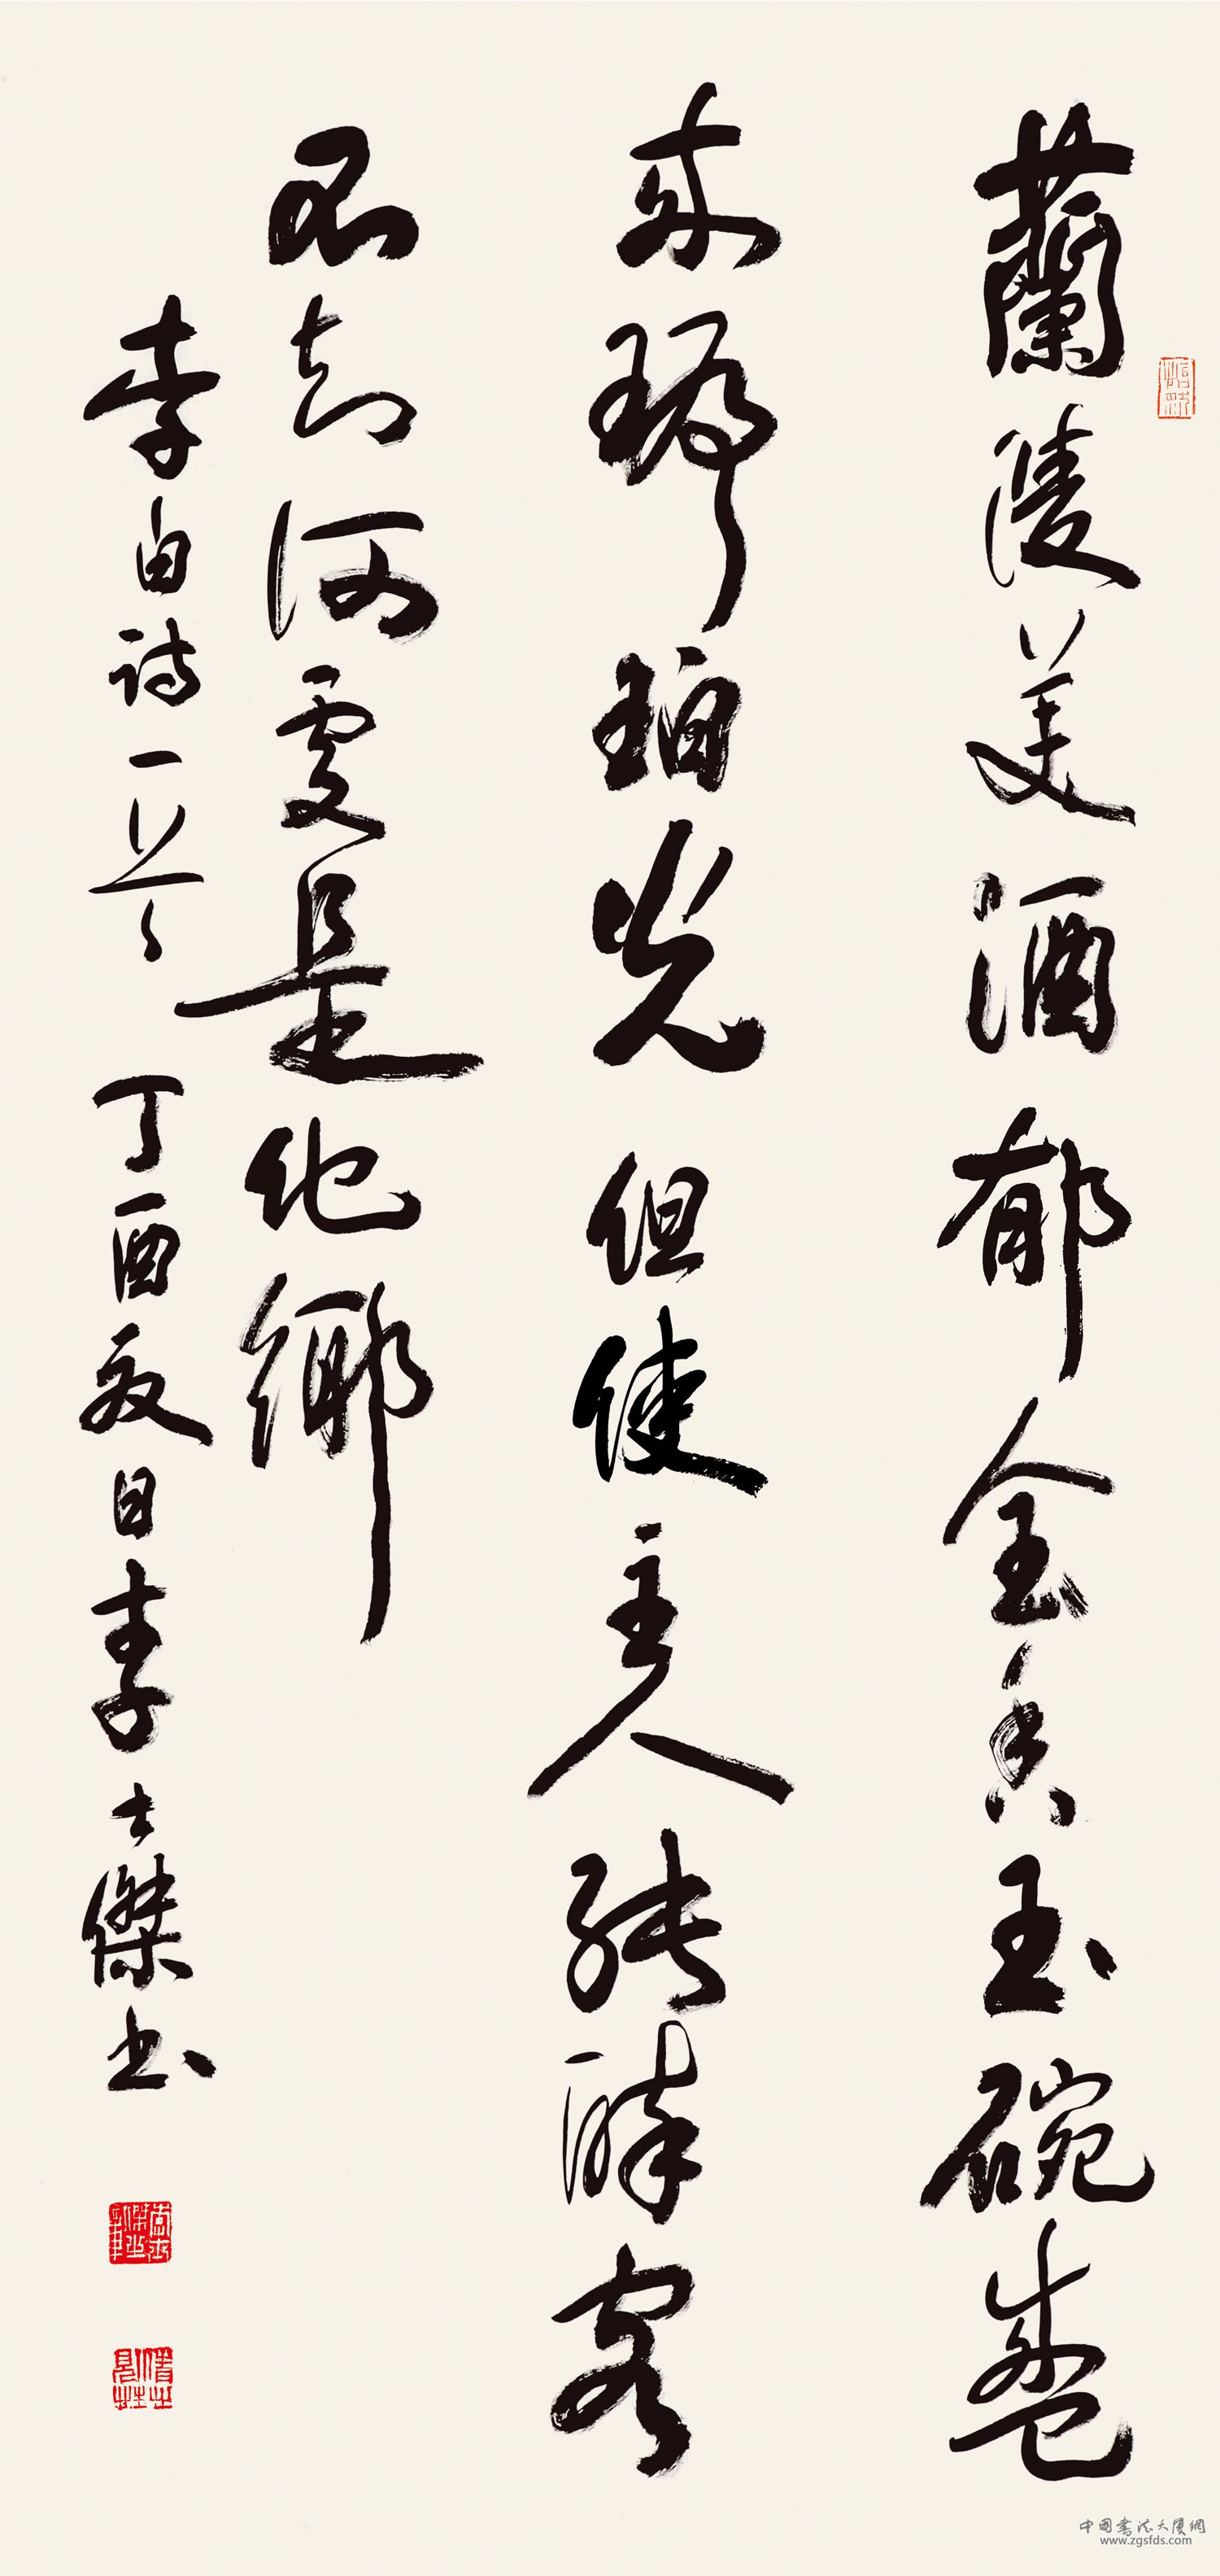 蘭陵美酒郁金香玉碗盛
来琥珀光但使主人能醉客
不知何處是他鄉
李白詩一首 丁酉夏日李士傑书
中国書法大厦網
www.zgsfds.com